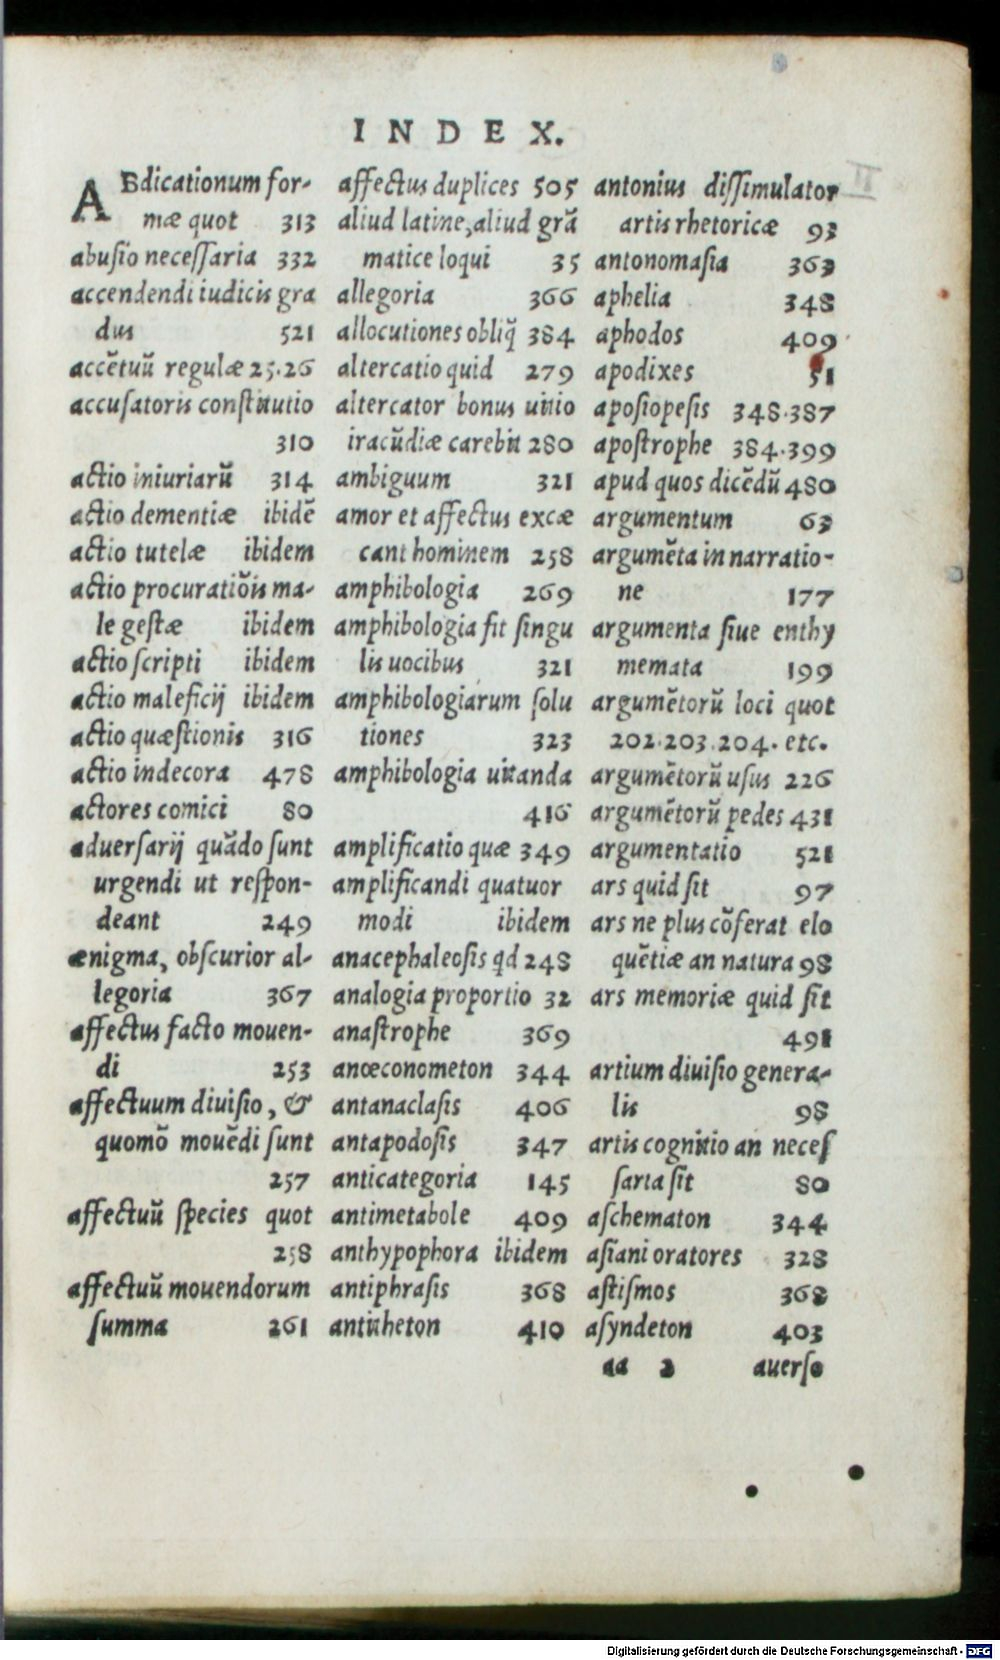 INDEX.
ABdicationum for-
mæ quot 313
abusio necessaria 332
accendendi iudicis gra
dus 521
accẽtuũ regulæ 25.26
accusatoris constitutio
310
actio iniuriarũ 314
actio dementiæ ibidẽ
actio tutelæ ibidem
actio procuratiõis ma-
le gestæ ibidem
actio scripti ibidem
actio maleficij ibidem
actio quæstionis 316
actio indecora 478
actores comici 80
aduersarij quãdo sunt
urgendi ut respon-
deant 249
ænigma, obscurior al-
legoria 367
affectus facto mouen-
di 253
affectuum diuisio, &
quomõ mouẽdi sunt
257
affectuũ species quot
258
affectuũ mouendorum
summa 261
affectus duplices 505
aliud latine, aliud grã
matice loqui 35
allegoria 366
allocutiones obliq̃ 384
altercatio quid 279
altercator bonus uitio
iracũdiæ carebit 280
ambiguum 321
amor et affectus excæ
cant hominem 258
amphibologia 269
amphibologia fit singu
lis uocibus 321
amphibologiarum solu
tiones 323
amphibologia uitanda
416
amplificatio quæ 349
amplificandi quatuor
modi ibidem
anacephaleosis qd 248
analogia proportio 32
anastrophe 369
anœconometon 344
antanaclasis 406
antapodosis 347
anticategoria 145
antimetabole 409
anthypophora ibidem
antiphrasis 368
antitheton 410
antonius dissimulator
artis rhetoricæ 93
antonomasia 363
aphelia 348
aphodos 409
apodixes 51
aposiopesis 348.387
apostrophe 384.399
apud quos dicẽdũ 480
argumentum 63
argumẽta in narratio-
ne 177
argumenta siue enthy
memata 199
argumẽtorũ loci quot
202.203.204. etc.
argumẽtorũ usus 226
argumẽtorũ pedes 431
argumentatio 521
ars quid sit 97
ars ne plus cõferat elo
quẽtiæ an natura 98
ars memoriæ quid sit
491
artium diuisio genera-
lis 98
artis cognitio an neces
saria sit 80
aschematon 344
asiani oratores 328
astismos 368
asyndeton 403
aa 2 auerso
Digitalisierung gefördert durch die Deutsche Forschungsgemeinschaft - DFG